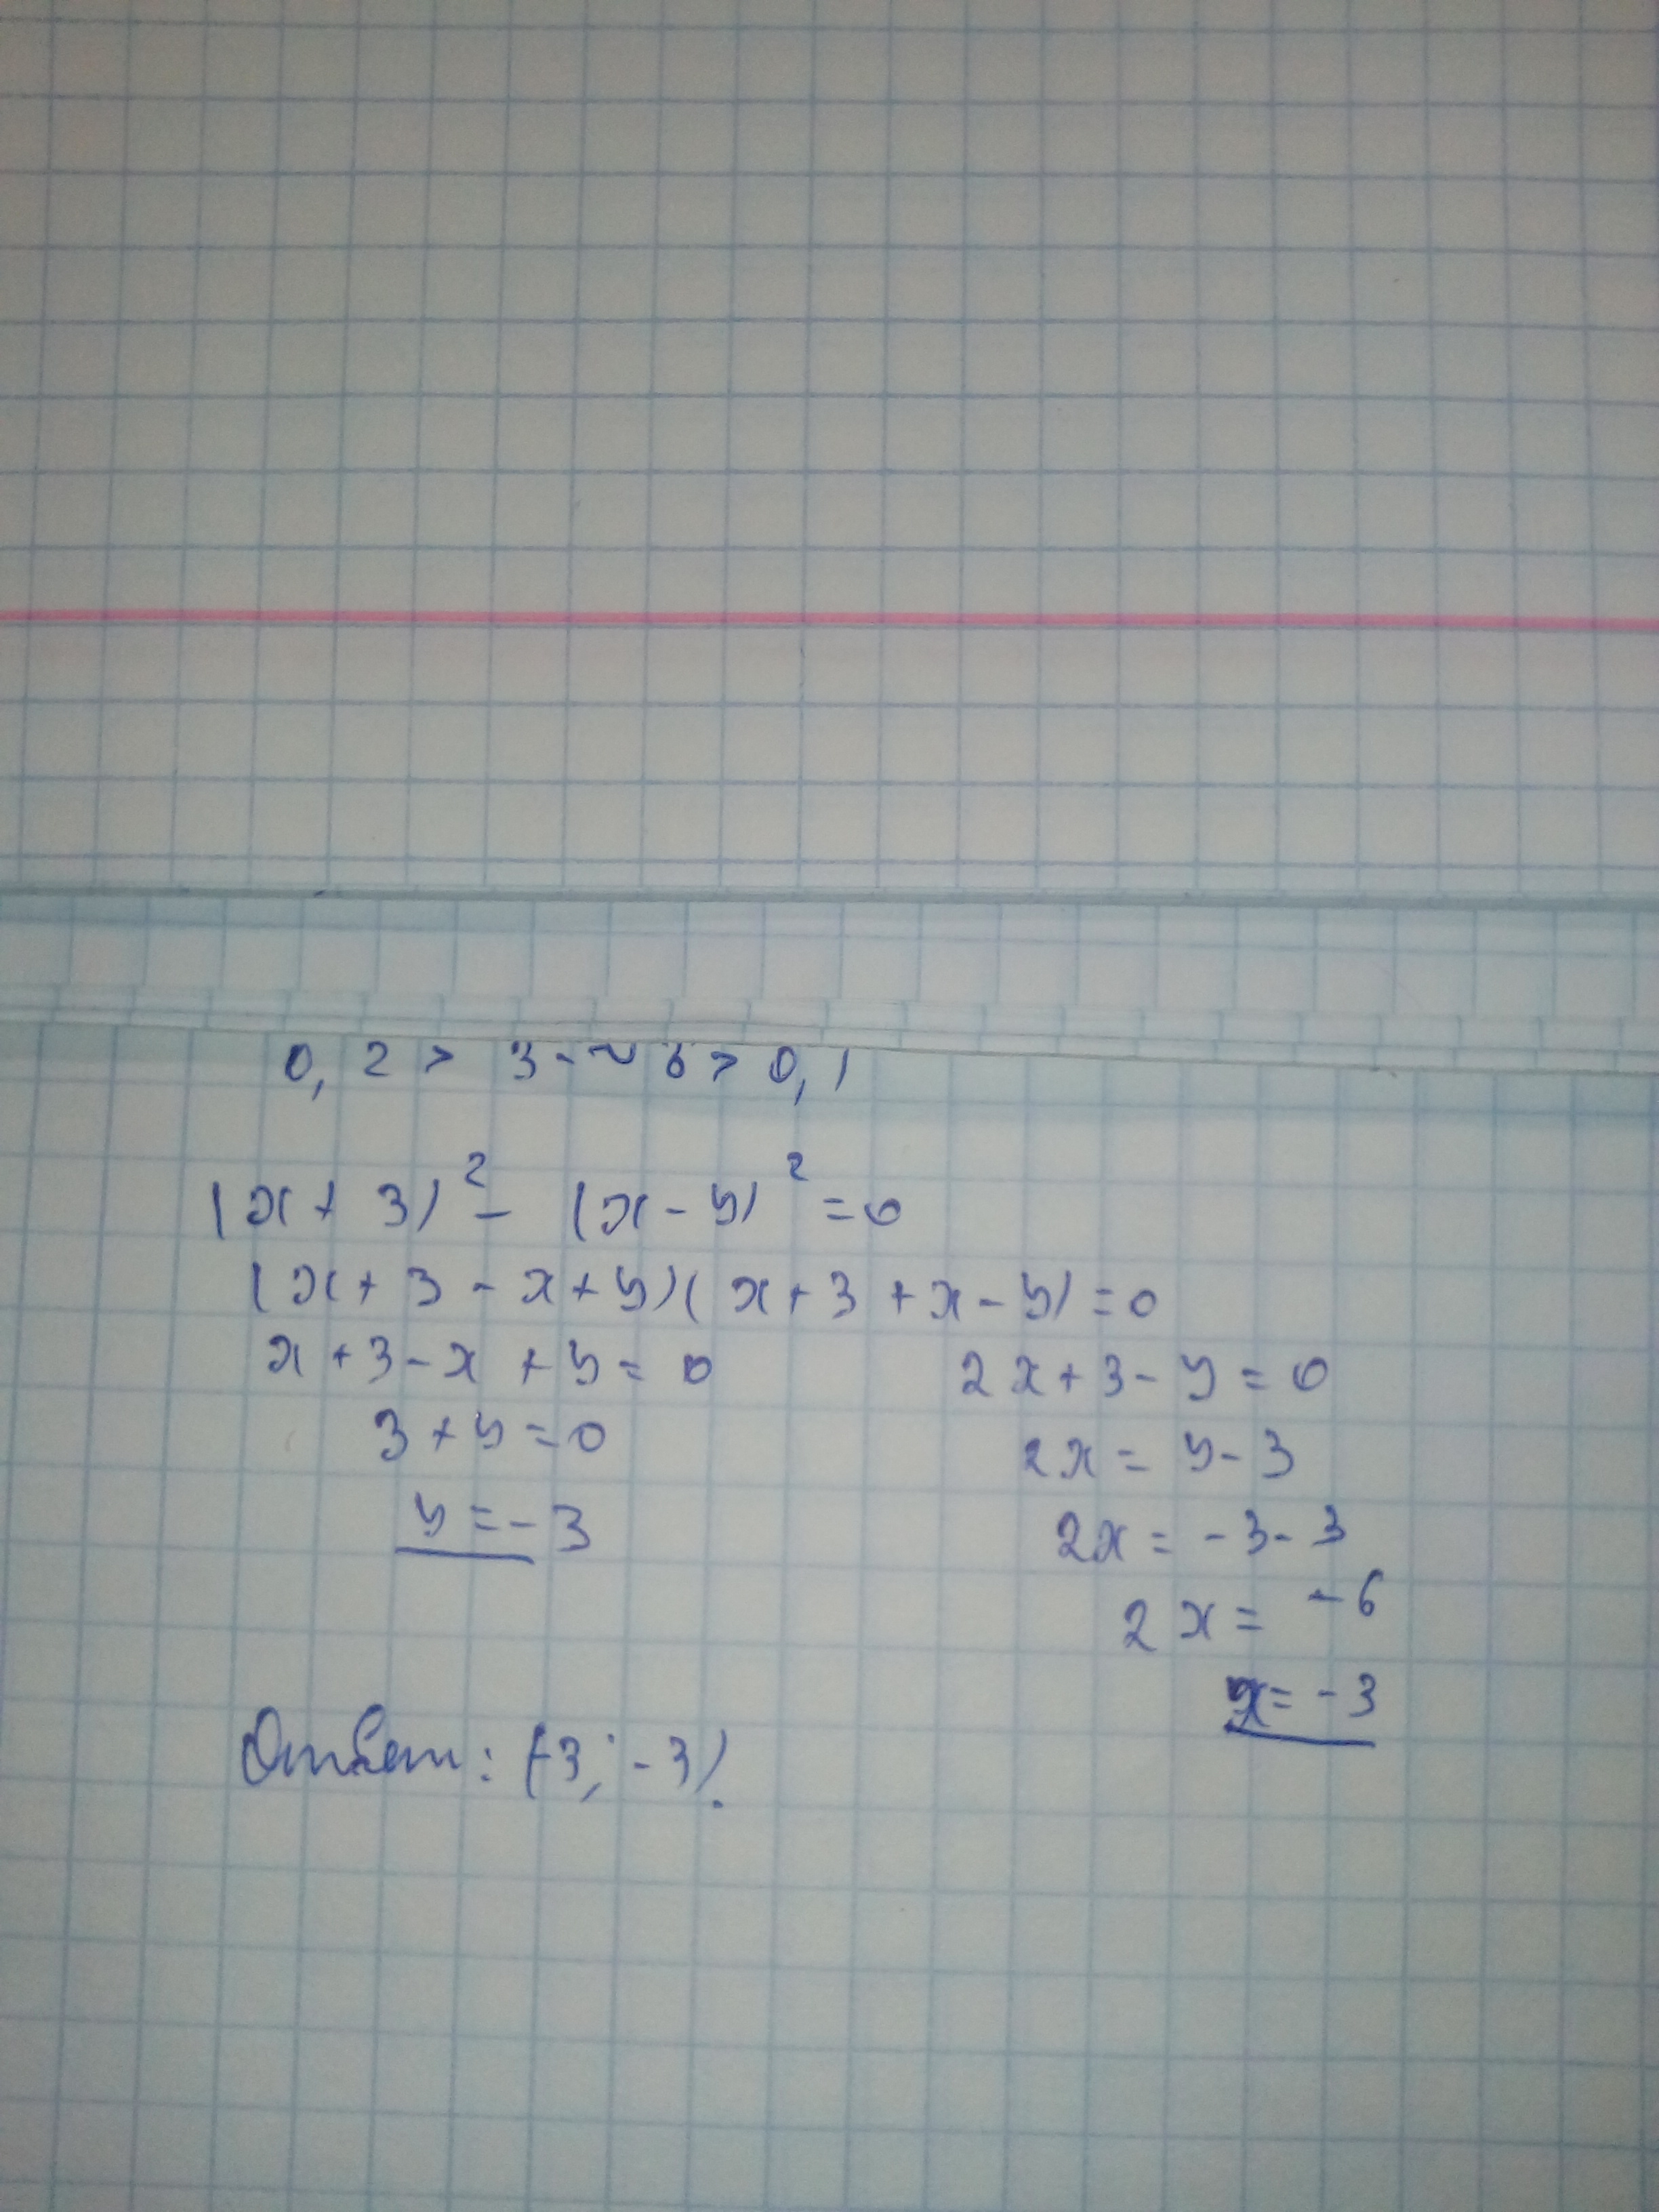 0,2 > 3 - ~ 6 > 0,1
(x + 3)² - (x - y)² = 0
(x + 3 - x + y)(x + 3 + x - y) = 0
x + 3 - x + y = 0 2x + 3 - y = 0
3 + y = 0 2x = y - 3
y = -3 2x = -3 - 3
2x = -6
x = -3
Ответ: (-3; -3).